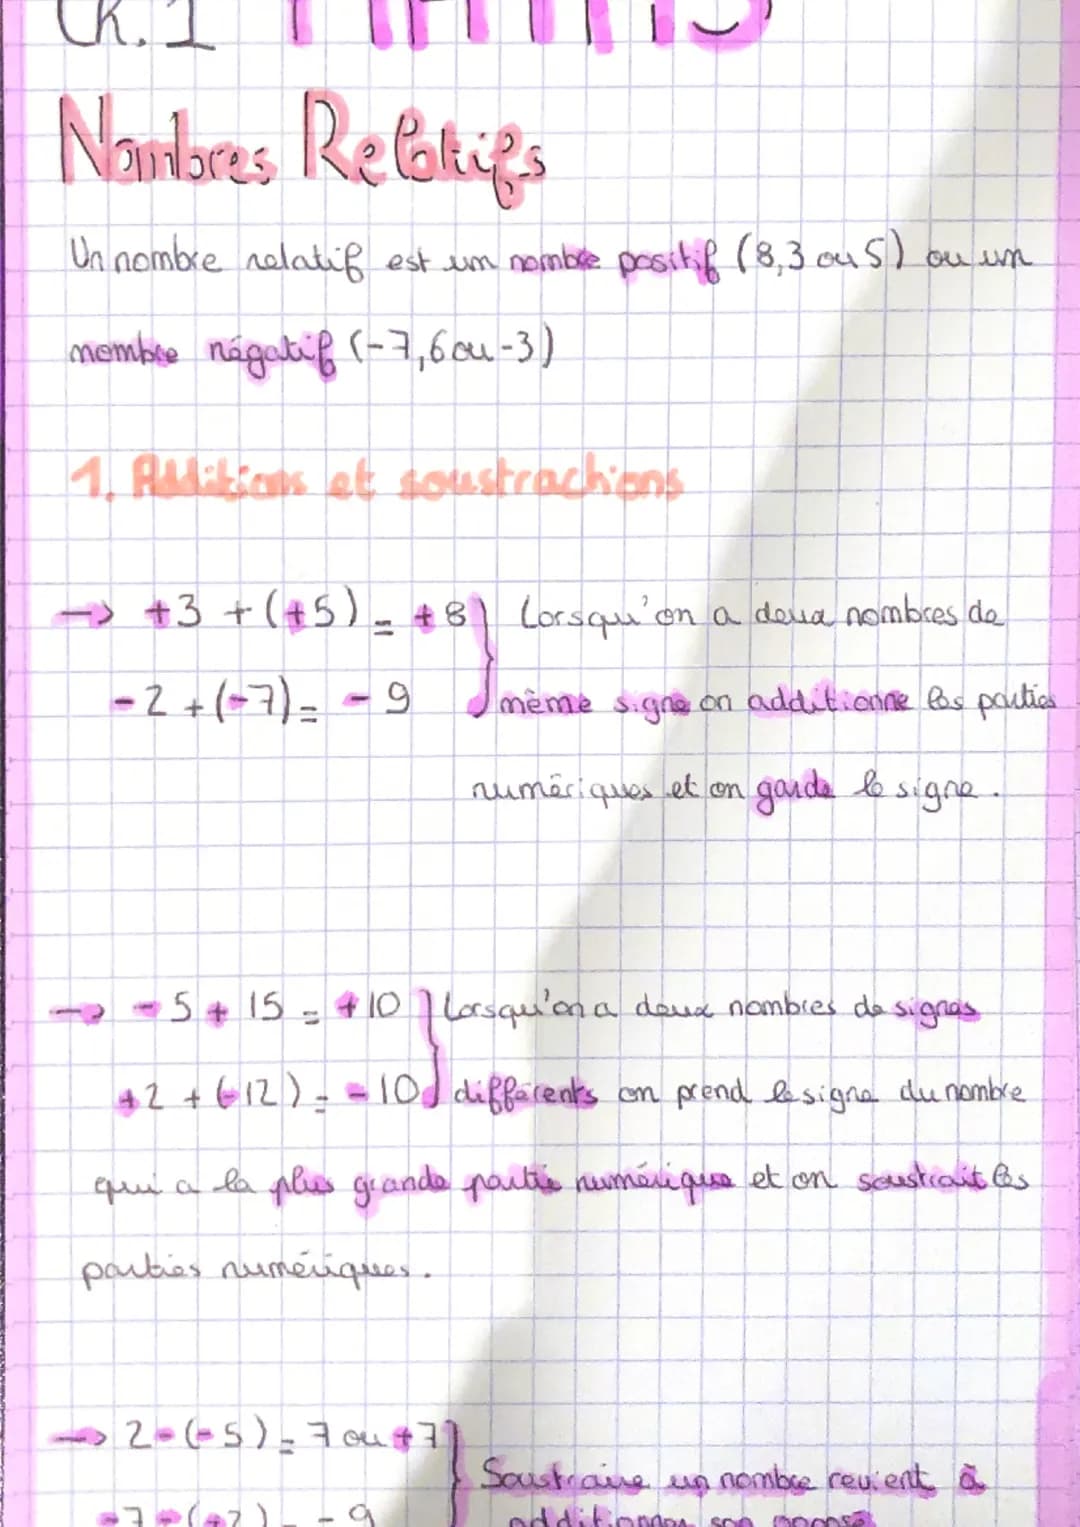 Ch. 1 MATHS
Nombres Relatifs
Un nombre relatif est un nombre positif (8,3 ou 5) ou un
nombre négatif (-7,6 ou -3)
1. Additions et soustractions
→ +3 + (+5) = +8 } Lorsqu'on a deux nombres de
-2 + (-7) = -9 même signe on additionne les parties
numériques et on garde le signe.
→ -5 + 15 = +10 } Lorsqu'on a deux nombres de signes
+2 + (-12) = -10 différents on prend le signe du nombre
qui a la plus grande partie numérique et on soustrait les
parties numériques.
→ 2-(-5) = 7 ou +7 }
Soustraire un nombre revient à
-7-(+2) = -9
additionner son opposé